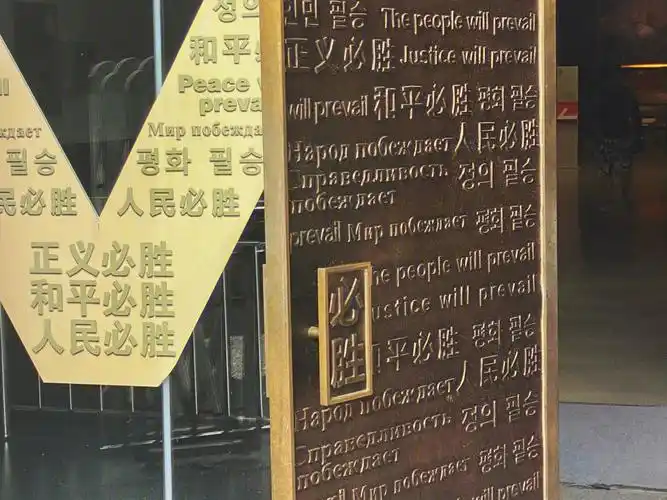 정의
和平必
Peace
prevail
Мир побежда
필승 평화 필승
民必胜 人民必胜
正义必胜
和平必胜
人民必胜
인민 필승 The people will prevail
正义必胜 Justice will prevail
will prevail 和平必胜 평화 필승
Народ побеждает 人民必胜
Справедливость 정의 필승
побеждает
prevail Мир побеждает 평화 필승
he people will prevail
ustice will prevail
必
胜
和平必胜 평화 필승
Народ побеждает 人民必胜
Справедливость 정의 필승
побеждает
Мир побеждает 평화 필승
will prevail